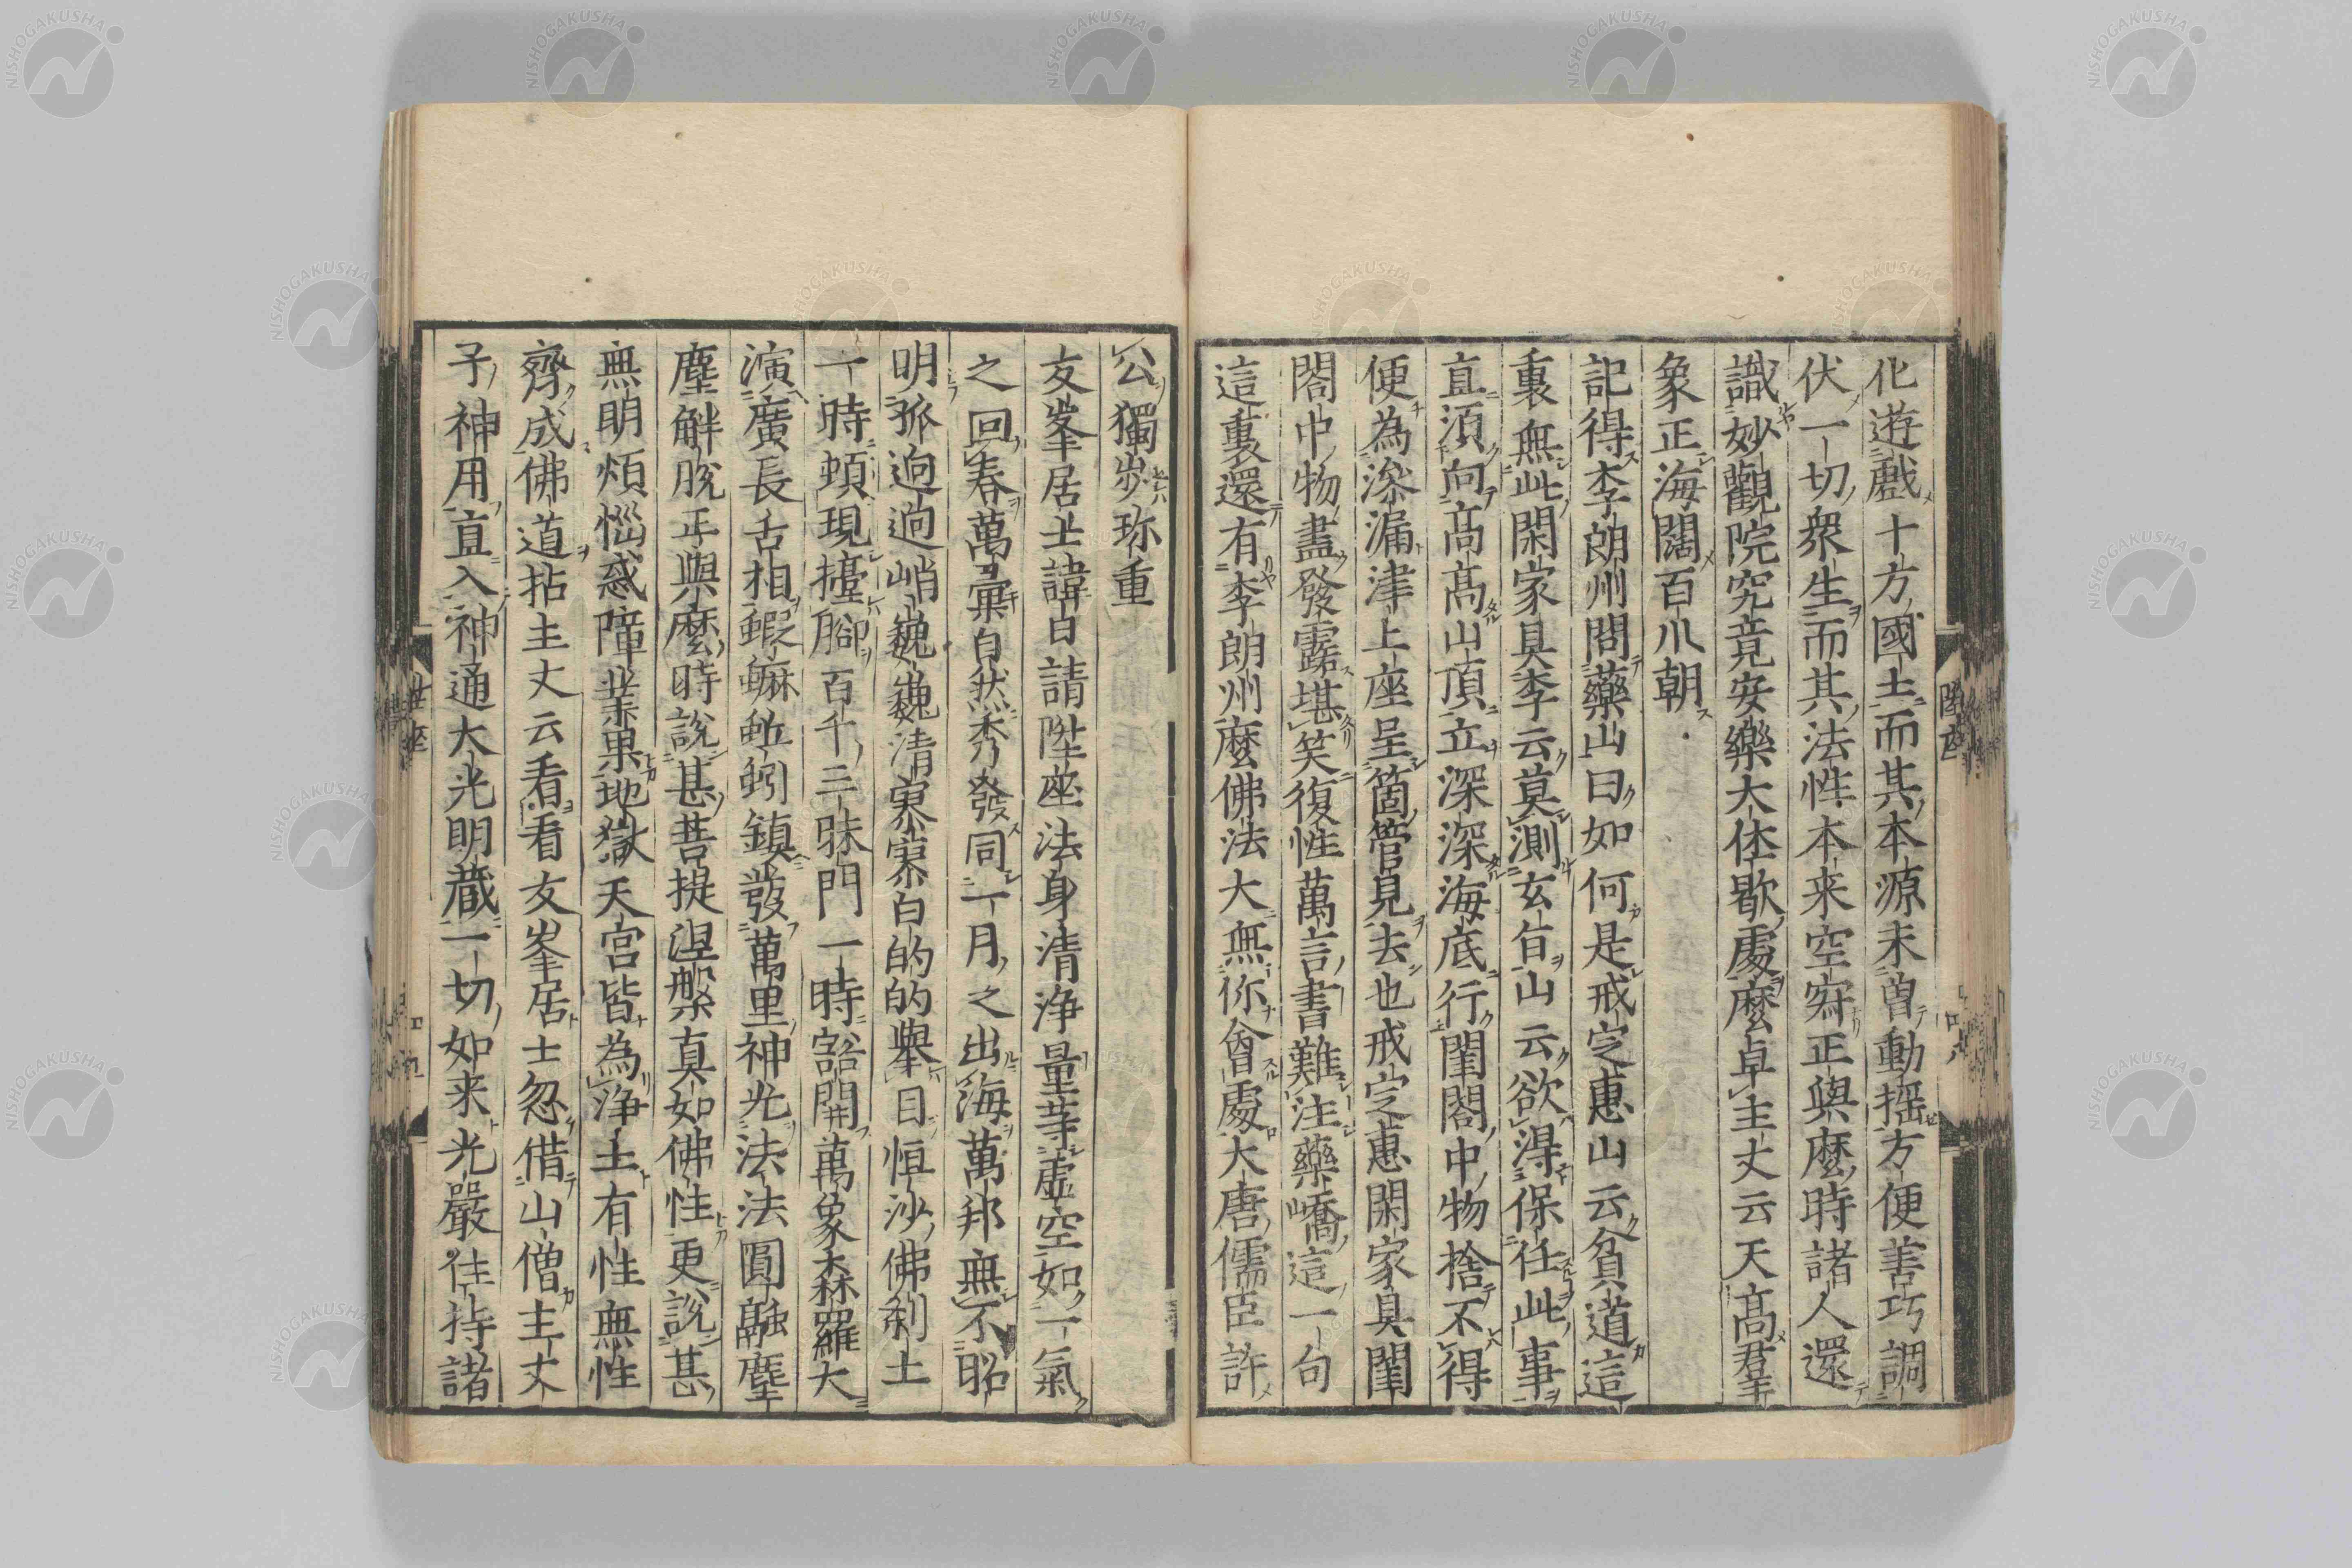 化遊戲十方國土而其本源未曽動揺方便善巧調
伏一切衆生而其法性本来空寂正與麼時諸人還
識妙觀院究竟安樂大休歇處麼卓主丈云天髙羣
象正海闊百川朝
記得李朗州問藥山曰如何是戒定惠山云貧道這
裏無此閑家具李云莫測玄旨山云欲得保任此事
直須向髙髙山頂立深深海底行閨閤中物捨不得
便為滲漏津上座呈箇管見去也戒定惠閑家具閨
閤中物盡發露堪笑復性萬言書難注藥嶠這一句
這裏還有李朗州麼佛法大無你會處大唐儒臣許
公獨歩珎重
友峯居士諱日請陞座法身清浄量等虚空如一氣
之回春萬彙自然秀發同一月之出海萬邦無不昭
明孤迥迥峭巍巍清寥寥白的的舉目恒沙佛刹土
一時頓現擡脚百千三昧門一時豁開萬象森羅大
演廣長舌相蝦蟆蚯蚓鎮發萬里神光法法圓融塵
塵解脱正與麼時説甚菩提涅槃真如佛性更説甚
無明煩惱惑障業果地獄天宮皆為浄土有性無性
齊成佛道拈主丈云看看友峯居士忽借山僧主丈
子神用直入神通大光明蔵一切如来光嚴住持諸
NISHOGAKUSHA